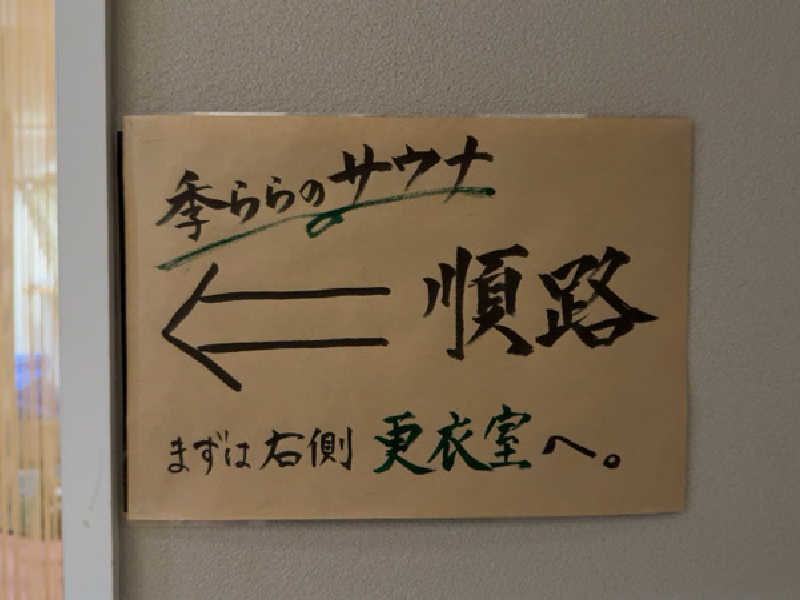 季ららのサウナ
順路
まずは右側 更衣室へ。